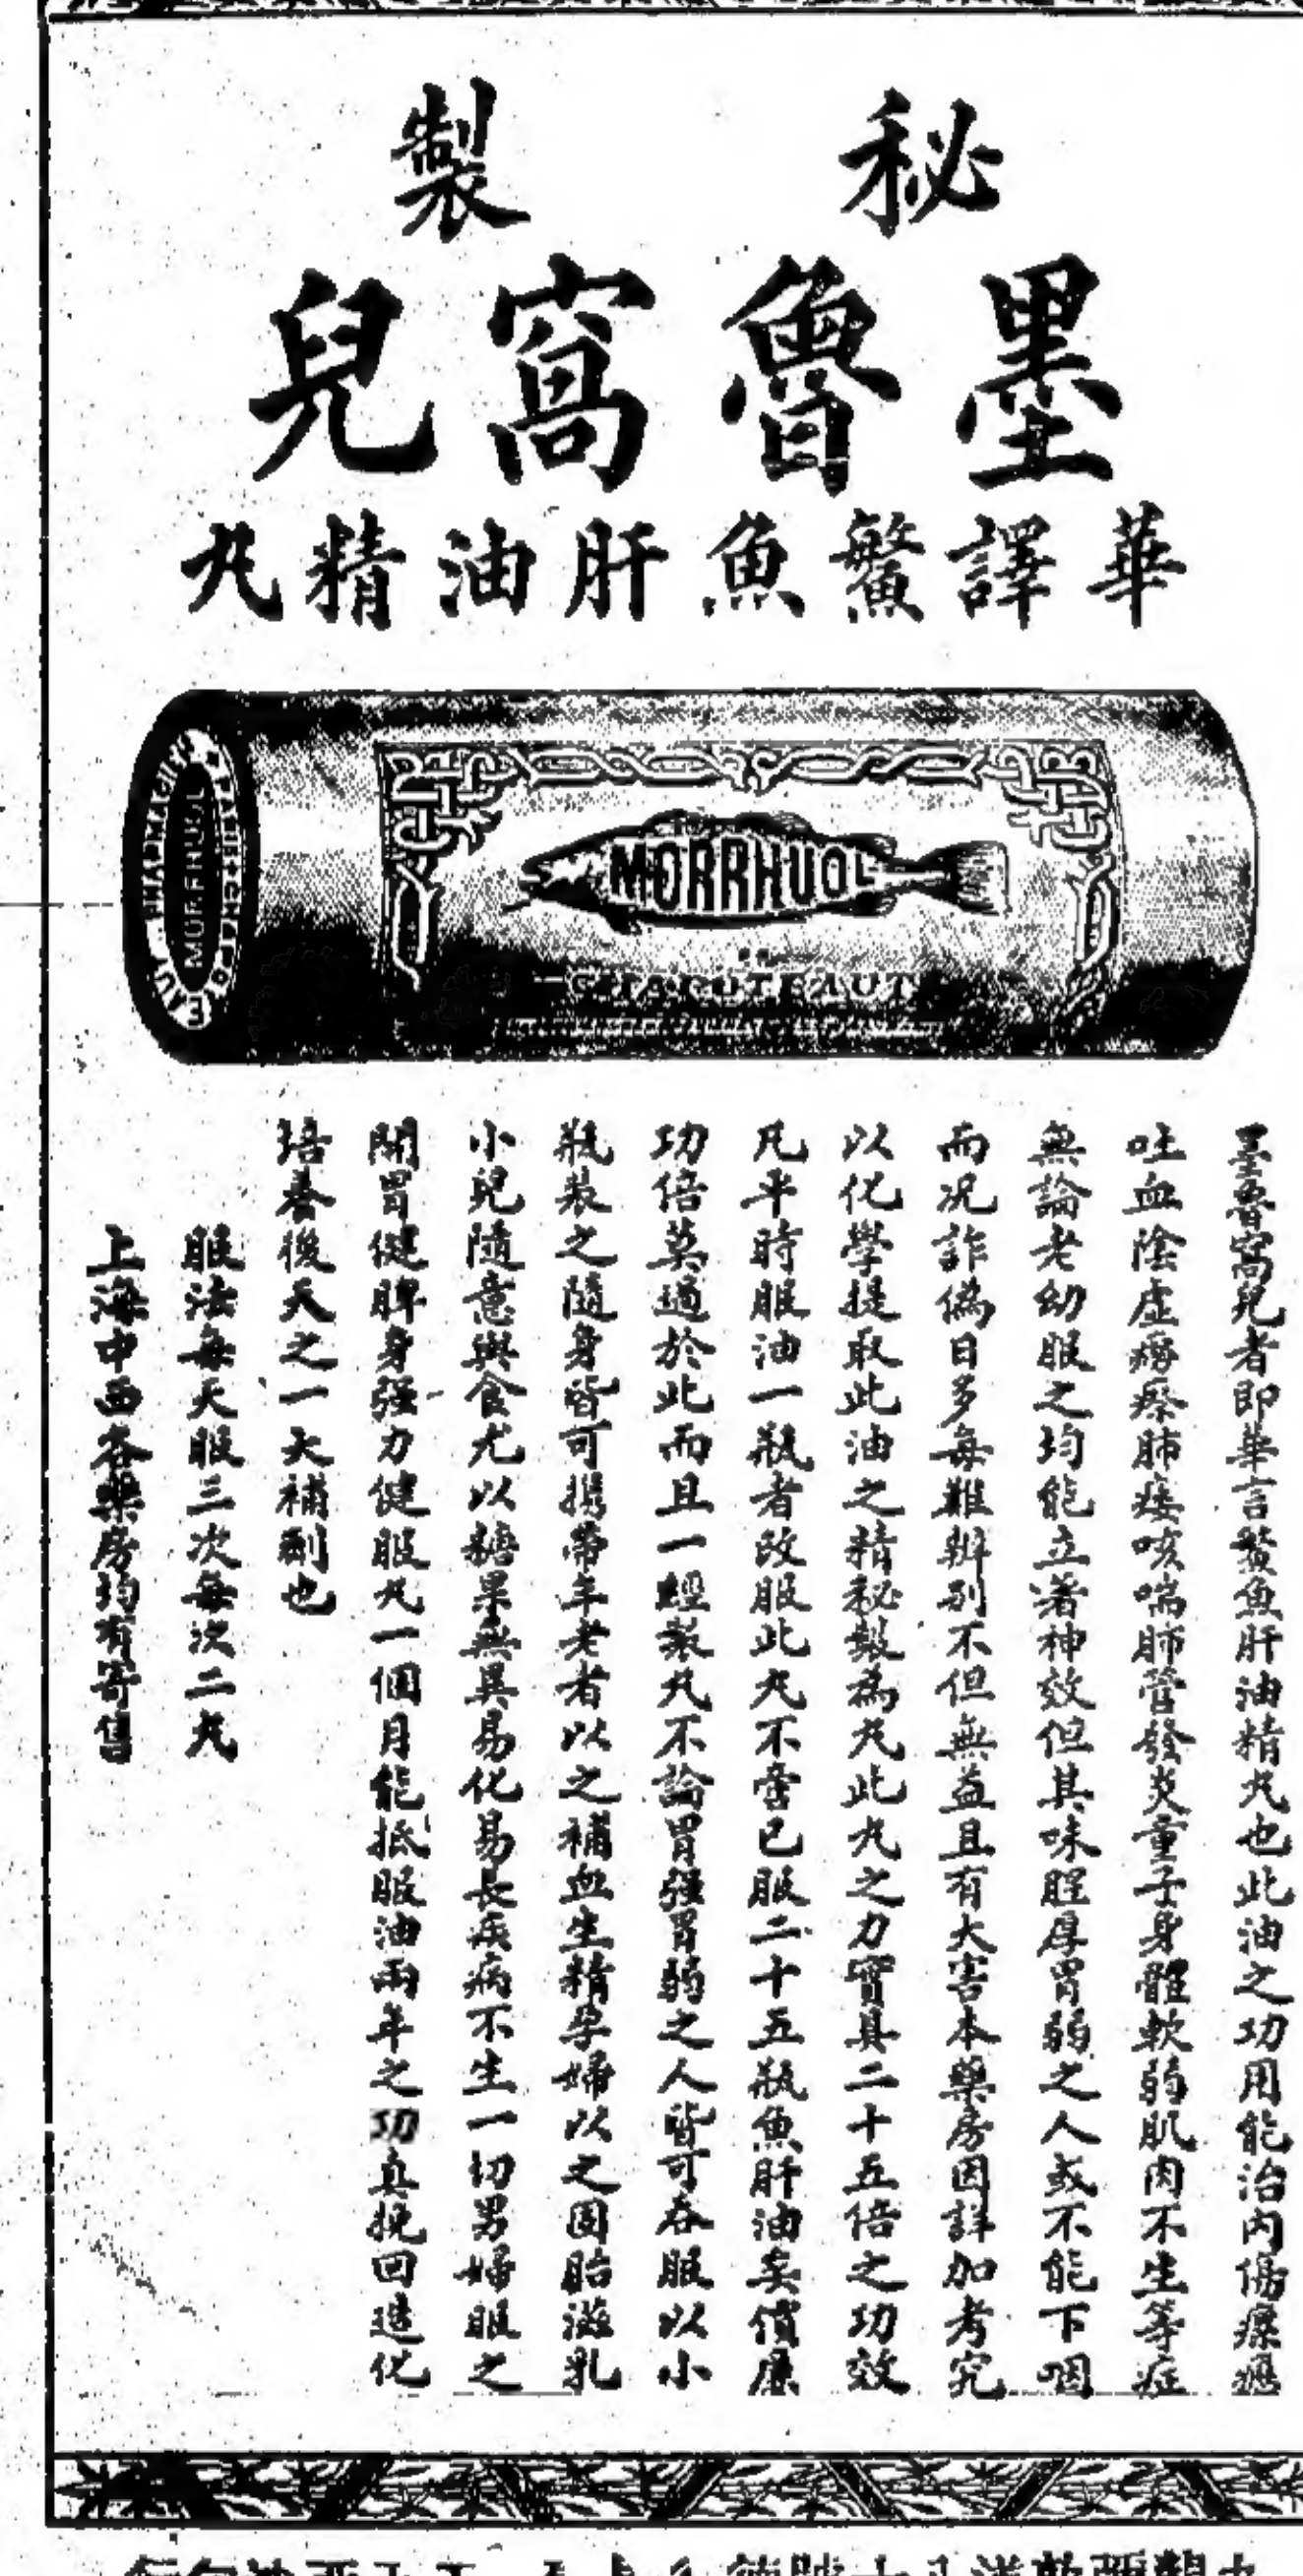 秘製
墨魯窩兒
華譯鱉魚肝油精丸
MORRHUOL
MORRHUOL
DE
CHAPOTEAUT
墨魯窩兒者即華言鱉魚肝油精丸也此油之功用能治內傷瘰癧
吐血陰虛癆瘵肺痿咳喘肺管發炎童子身體軟弱肌肉不生等症
無論老幼服之均能立著神效但其味腥厚胃弱之人或不能下咽
而况詐偽日多每難辨別不但無益且有大害本藥房因詳加考究
以化學提取此油之精秘製為丸此丸之力實具二十五倍之功效
凡平時服油一瓶者改服此丸不啻已服二十五瓶魚肝油矣價廉
功倍莫過於此而且一經製丸不論胃强胃弱之人皆可吞服以小
瓶裝之隨身皆可攜帶年老者以之補血生精孕婦以之固胎滋乳
小兒隨意與食尤以糖果無異易化易長疾病不生一切男婦服之
開胃健脾身强力健服丸一個月能抵服油兩年之功真挽回造化
培養後天之一大補劑也
服法每天服三次每次二丸
上海中西各藥房均有寄售